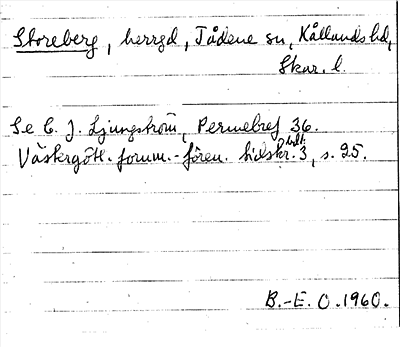 Storeberg, herrgd, Tådene sn, Kållands hd,
Skar. l.
Se C. J. Ljungström, Permebref 36.
Västergötl. fornm.-fören. tidskr. 3, s. 25.
B.-E. O. 1960.